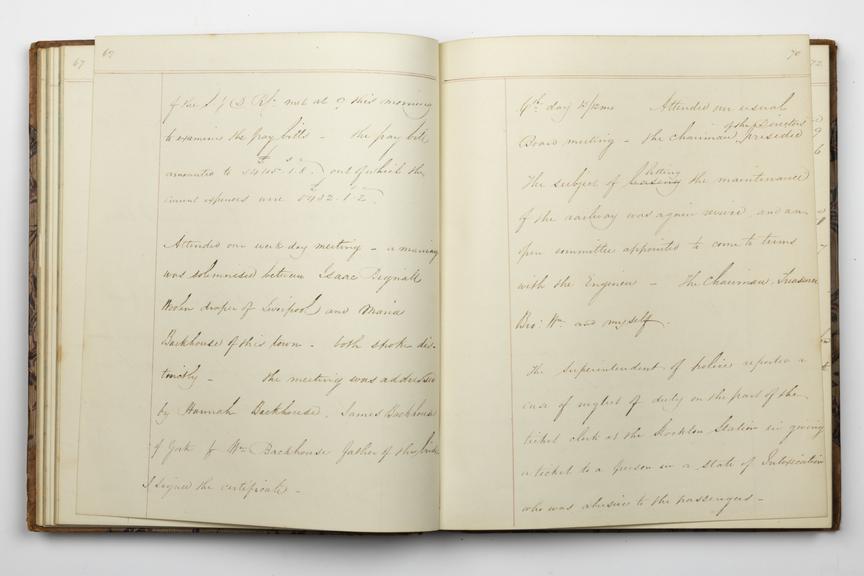 67
69
of the S & D Rly. met at 9 this morning
to examine the pay bills - the pay bill
amounted to out of which the
annual expenses were 5482.1.2.
Attended our week day meeting - a marriage
was solemnised between Isaac Bignall
Woolen draper of Liverpool and Maria
Backhouse of this town - both spoke dis-
tinctly - the meeting was addressed
by Hannah Backhouse. James Backhouse
of York & Wm. Backhouse father of the bride
I signed the certificate -
70
72
6th. day Attended our usual
of the Directors
Board meeting - the Chairman presided
letting
The subject of leasing the maintenance
of the railway was again and an
open committee appointed to come to terms
with the Engineer - The Chairman, Treasurer
Bro: Wm. and myself.
The Superintendent of police reported a
case of neglect of duty on the part of the
ticket clerk at the Stockton Station in giving
a ticket to a person in a state of Intoxication
who was abusive to the passengers -